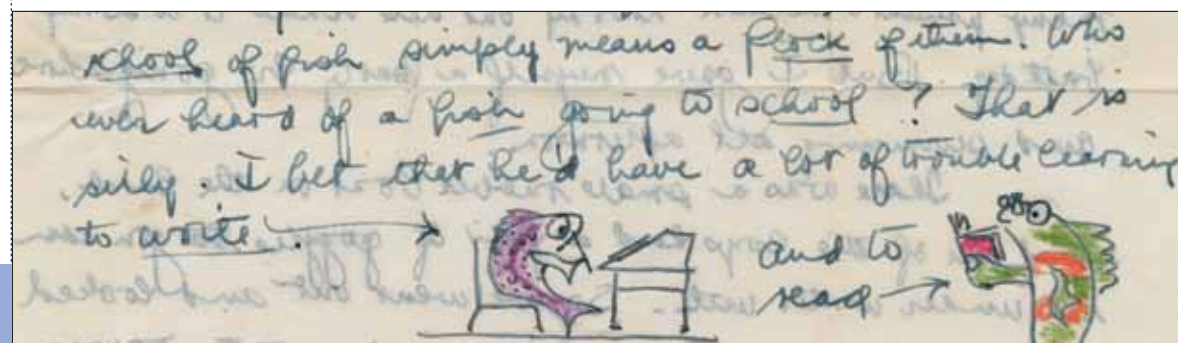 school of fish simply means a flock of them. Who
ever heard of a fish going to school? That is
silly. I bet that he'd have a lot of trouble learning
to write.
and to
read